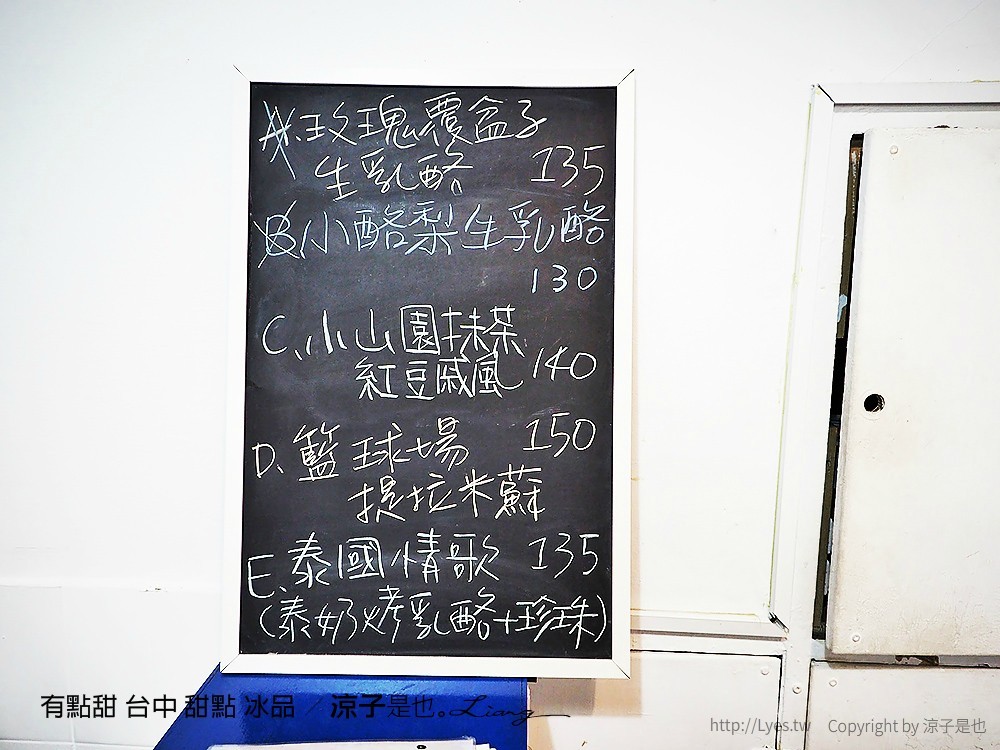 A.玫瑰覆盆子
生乳酪 135
B.小酪梨生乳酪
130
C、小山園抹茶
紅豆戚風 140
D、籃球場 150
提拉米蘇
E.泰國情歌 135
(泰奶烤乳酪+珍珠)
有點甜 台中 甜點 冰品 / 涼子是也。Liang
http://Lyes.tw Copyright by 涼子是也